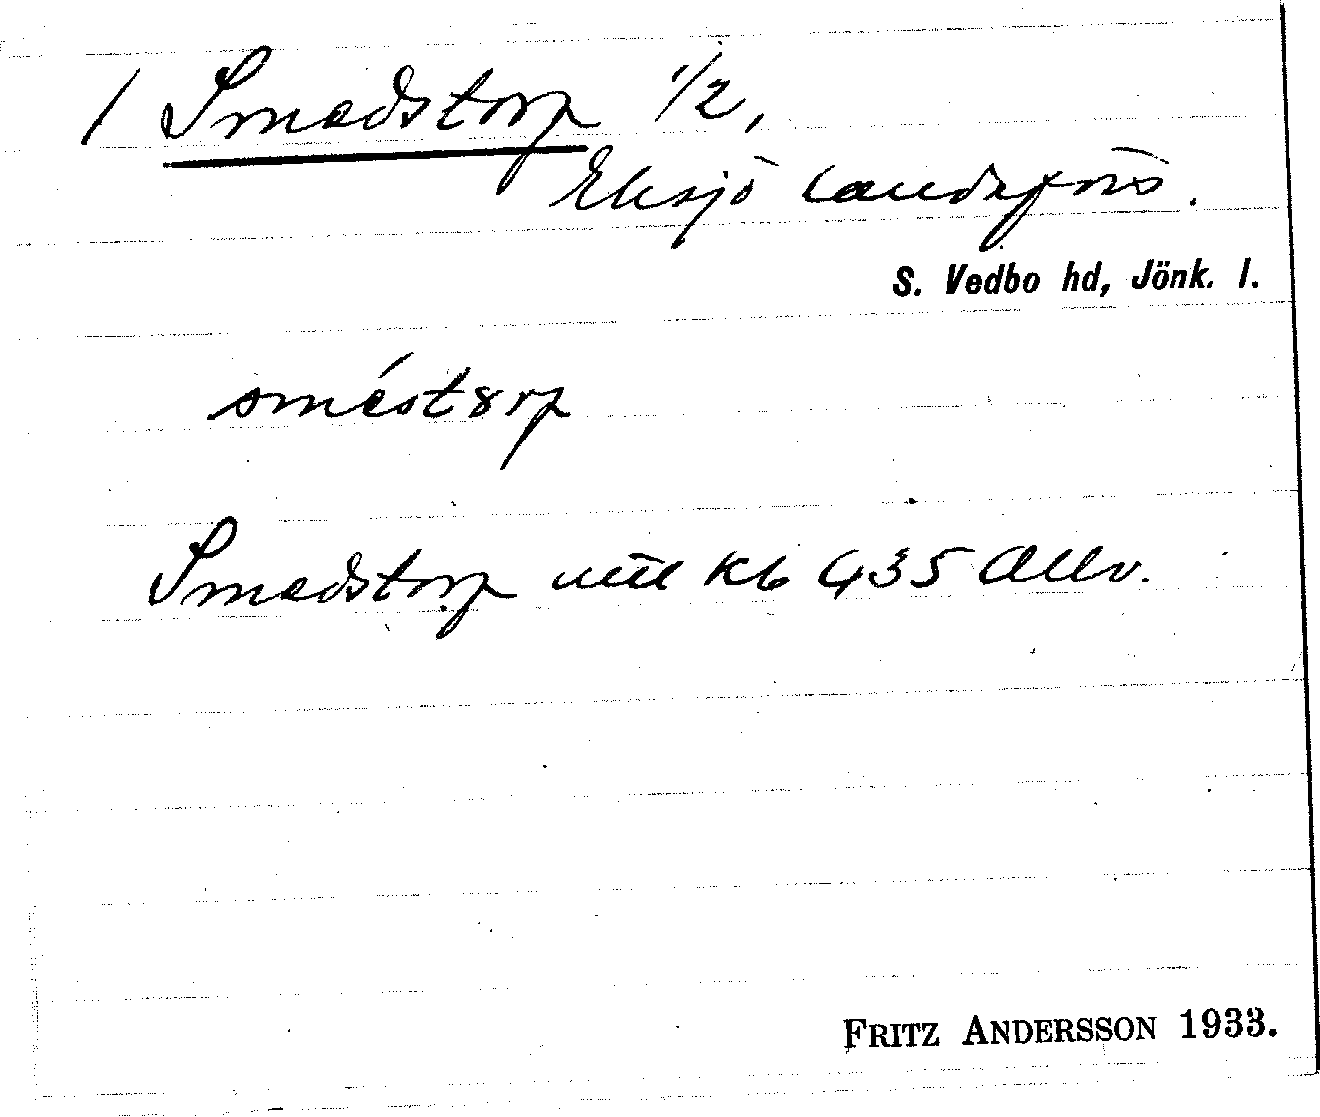 1 Smedstorp 1/2,
Eksjö landsförs.
S. Vedbo hd, Jönk. l.
sméstorp
Smedstorp Kb 435 Allv.
FRITZ ANDERSSON 1933.